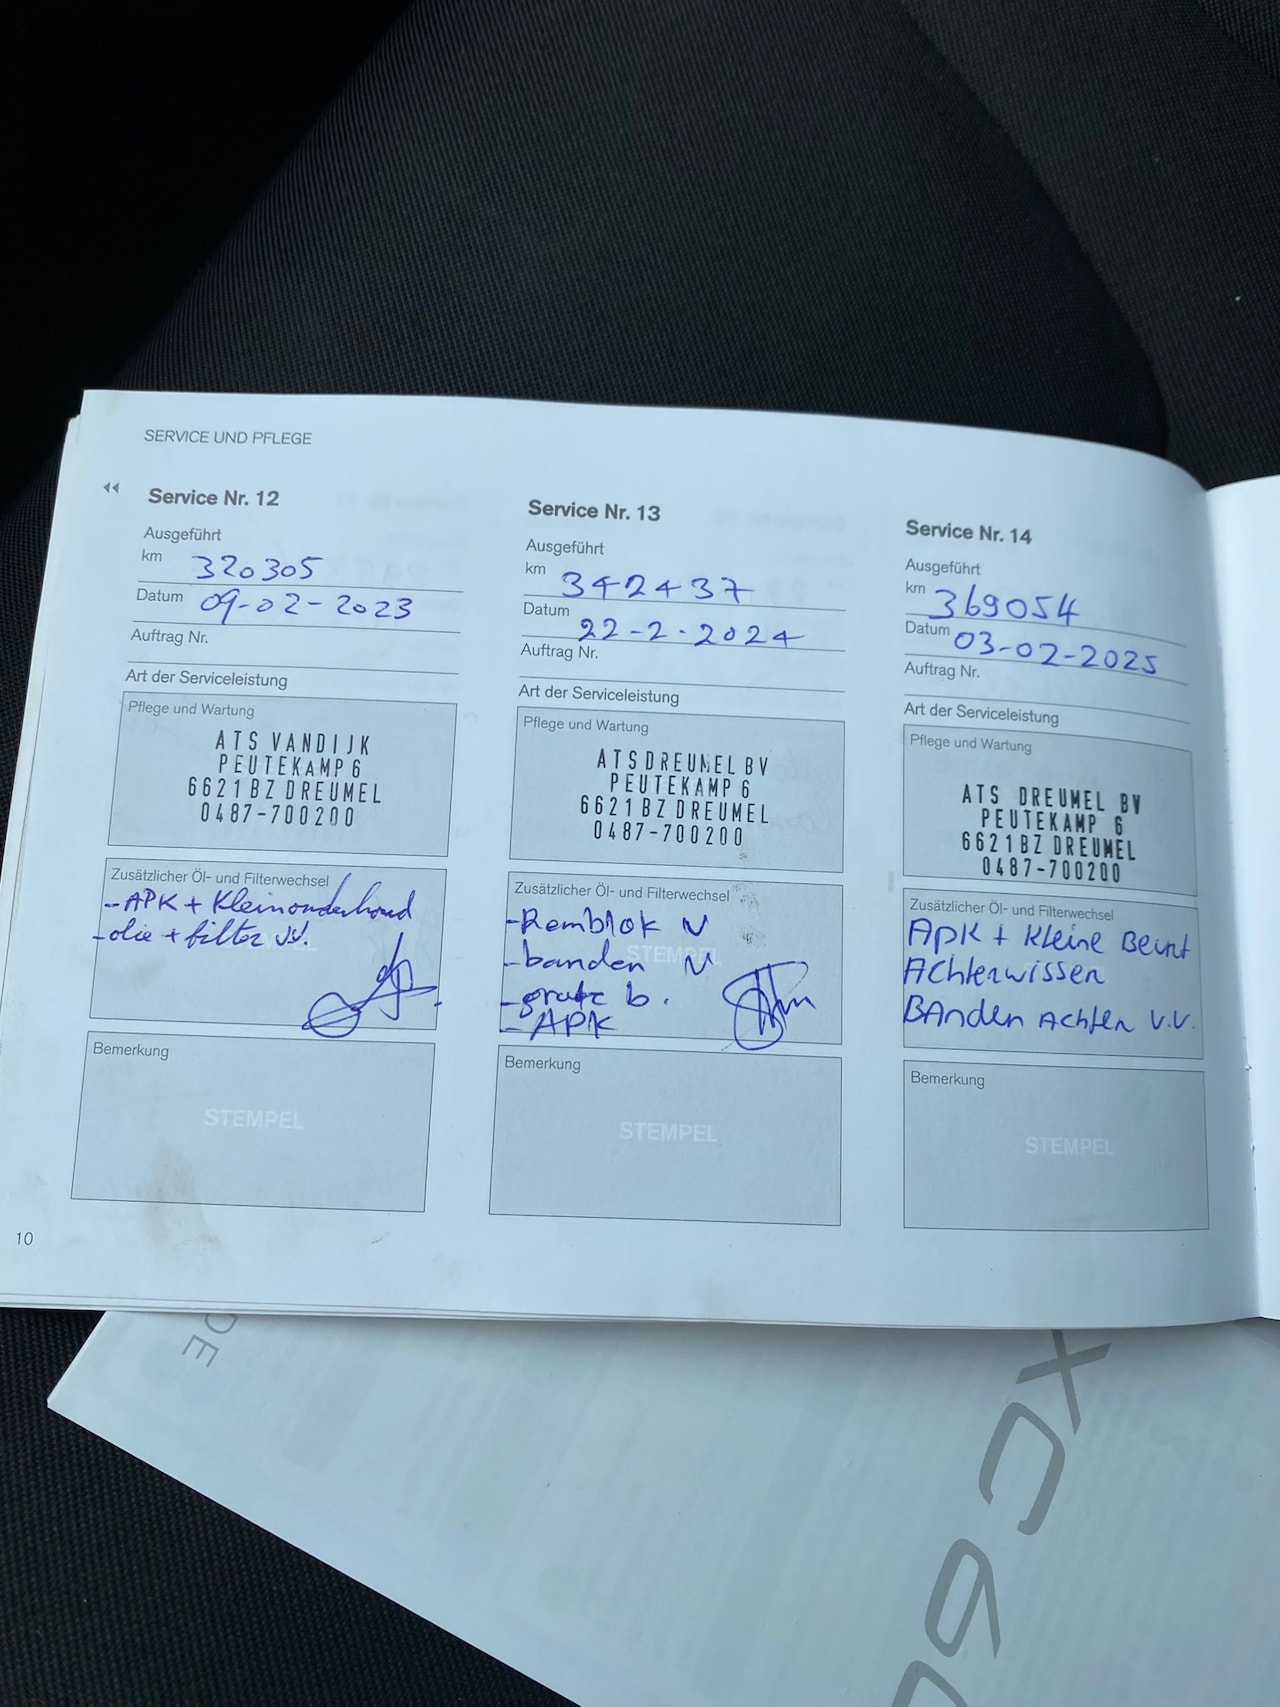 SERVICE UND PFLEGE
Service Nr. 12
Ausgeführt
km 320305
Datum 09-02-2023
Auftrag Nr.
Art der Serviceleistung
Pflege und Wartung
ATS VANDIJK
PEUTEKAMP 6
6621 BZ DREUMEL
0487-700200
Zusätzlicher Öl- und Filterwechsel
- APK + Kleinonderhoud
- olie + filter V.V.
Bemerkung
STEMPEL
10
Service Nr. 13
Ausgeführt
km 342437
Datum 22-2-2024
Auftrag Nr.
Art der Serviceleistung
Pflege und Wartung
ATS DREUMEL BV
PEUTEKAMP 6
6621 BZ DREUMEL
0487-700200
Zusätzlicher Öl- und Filterwechsel
- Remblok V
STEMPEL
- banden V
b.
- APK
Bemerkung
STEMPEL
Service Nr. 14
Ausgeführt
km 369054
Datum 03-02-2025
Auftrag Nr.
Art der Serviceleistung
Pflege und Wartung
ATS DREUMEL BV
PEUTEKAMP 6
6621 BZ DREUMEL
0487-700200
Zusätzlicher Öl- und Filterwechsel
APK + Kleine Beurt
Achterwissen
Banden Achter V.V.
Bemerkung
STEMPEL
DE
XC60